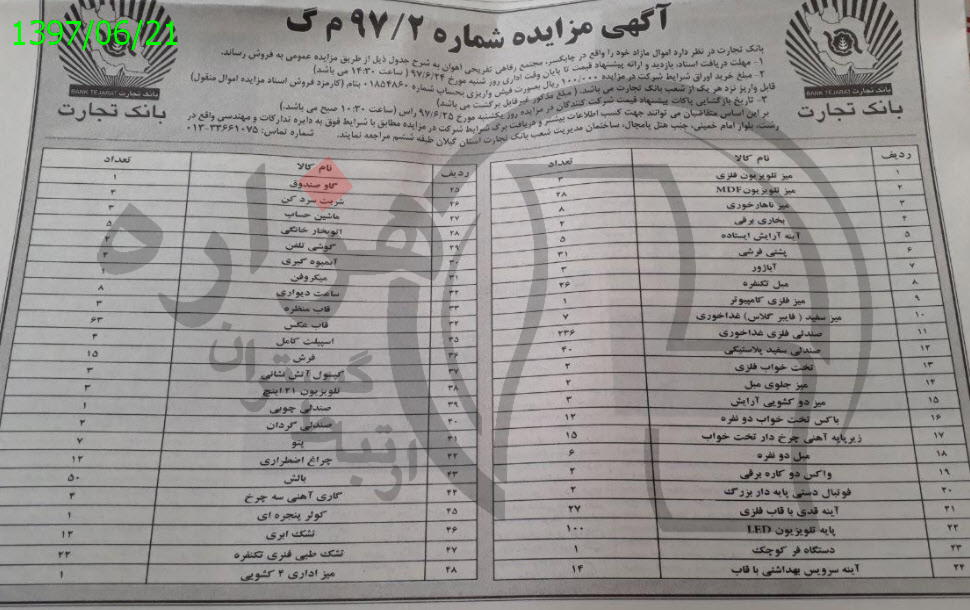 1397/06/21
آگهی مزایده شماره ۹۷/۲ م گ
بانک تجارت
BANK TEJARAT
بانک تجارت
BANK TEJARAT
بانک تجارت در نظر دارد اموال مازاد خود را واقع در چابکسر، مجتمع رفاهی تفریحی اهوان به شرح جدول ذیل از طریق مزایده عمومی به فروش رساند.
۱- مهلت دریافت اسناد، بازدید و ارائه پیشنهاد قیمت تا پایان وقت اداری روز شنبه مورخ ۹۷/۶/۲۴ (ساعت ۱۴:۳۰ می باشد)
۲- مبلغ خرید اوراق شرایط شرکت در مزایده ۱۰۰/۰۰۰ ریال بصورت فیش واریزی بحساب شماره ۰۱۸۵۴۸۶۰ بنام (کارمزد فروش اسناد مزایده اموال منقول)
قابل واریز نزد هر یک از شعب بانک تجارت می باشد. (مبلغ مذکور غیرقابل برگشت می باشد)
۳- تاریخ بازگشایی پاکات پیشنهاد قیمت شرکت کنندگان در مزایده روز یکشنبه مورخ ۹۷/۶/۲۵ راس (ساعت ۱۰:۳۰ صبح می باشد.)
بر این اساس متقاضیان می توانند جهت کسب اطلاعات بیشتر و دریافت برگ شرایط شرکت در مزایده مطابق با شرایط فوق به دایره تدارکات و مهندسی واقع در
رشت، بلوار امام خمینی، جنب هتل پامچال، ساختمان مدیریت شعب بانک تجارت استان گیلان طبقه ششم مراجعه نمایند. شماره تماس: ۳۳۶۶۱۰۷۵-۰۱۳
ردیف نام کالا تعداد
۱ میز تلویزیون فلزی ۳
۲ میز تلویزیون MDF ۲۸
۳ میز ناهارخوری ۸
۴ بخاری برقی ۲
۵ آینه آرایش ایستاده ۵
۶ پشتی فرشی ۳۱
۷ آباژور ۳
۸ مبل تکنفره ۲۶
۹ میز فلزی کامپیوتر ۱
۱۰ میز سفید (فایبر گلاس) غذاخوری ۷
۱۱ صندلی فلزی غذاخوری ۲۳۶
۱۲ صندلی سفید پلاستیکی ۴۰
۱۳ تخت خواب فلزی ۲
۱۴ میز جلوی مبل ۲
۱۵ میز دو کشویی آرایش ۳
۱۶ باکس تخت خواب دو نفره ۱۲
۱۷ زیرپایه آهنی چرخ دار تخت خواب ۱۵
۱۸ مبل دو نفره ۶
۱۹ واکس دو کاره برقی ۲
۲۰ فوتبال دستی پایه دار بزرگ ۲
۲۱ آینه قدی با قاب فلزی ۲۷
۲۲ پایه تلویزیون LED ۱۰۰
۲۳ دستگاه فر کوچک ۱
۲۴ آینه سرویس بهداشتی با قاب ۱۴
ردیف نام کالا تعداد
۲۵ گاو صندوق ۱
۲۶ شربت سرد کن ۳
۲۷ ماشین حساب ۳
۲۸ اتوبخار خانگی ۵
۲۹ گوشی تلفن ۲
۳۰ آبمیوه گیری ۲
۳۱ میکروفن ۱
۳۲ ساعت دیواری ۸
۳۳ قاب منظره ۳
۳۴ قاب عکس ۶۳
۳۵ اسپیلت کامل ۴
۳۶ فرش ۱۵
۳۷ کپسول آتش نشانی ۳
۳۸ تلویزیون ۲۱ اینچ ۳
۳۹ صندلی چوبی ۱
۴۰ صندلی گردان ۲
۴۱ پتو ۷
۴۲ چراغ اضطراری ۱۲
۴۳ بالش ۵۰
۴۴ گاری آهنی سه چرخ ۴
۴۵ کولر پنجره ای ۱
۴۶ تشک ابری ۱۲
۴۷ تشک طبی فنری تکنفره ۲۲
۴۸ میز اداری ۴ کشویی ۱
هزاره
گستران
ارتباط